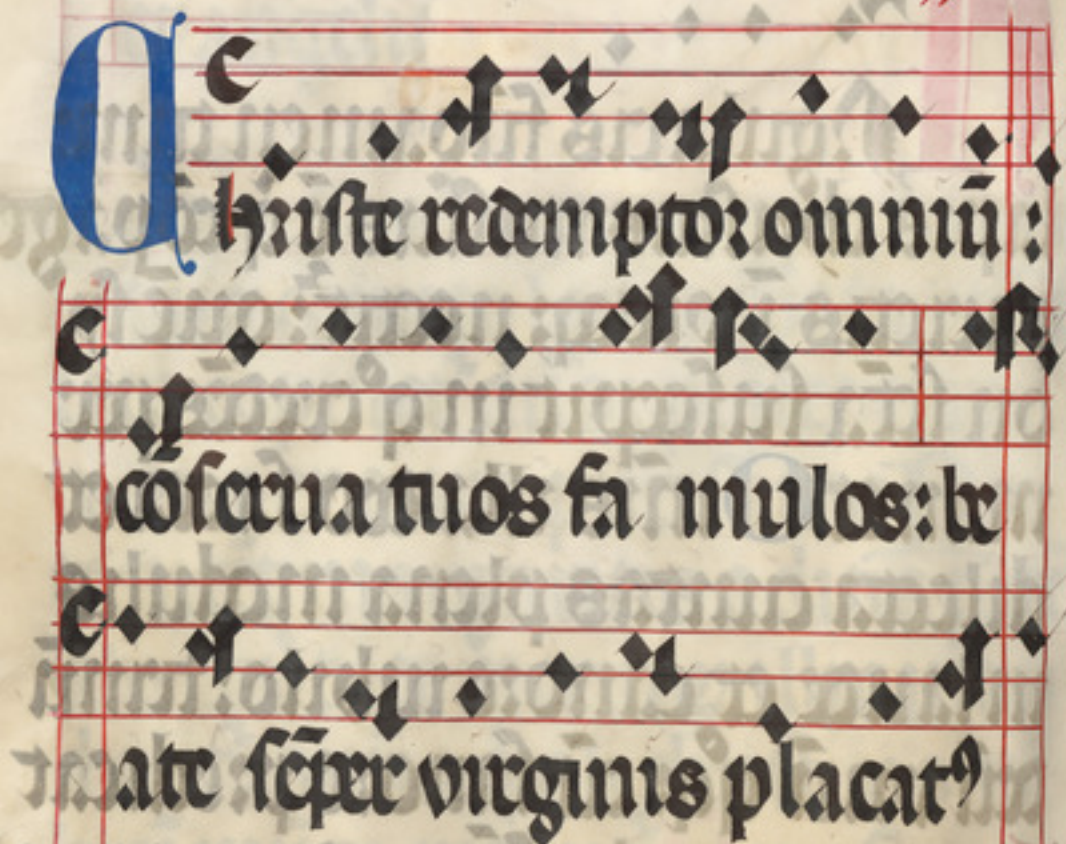 Christe redemptor omniū :
cōserua tuos fa mulos: be
ate sēper virginis placatꝰ